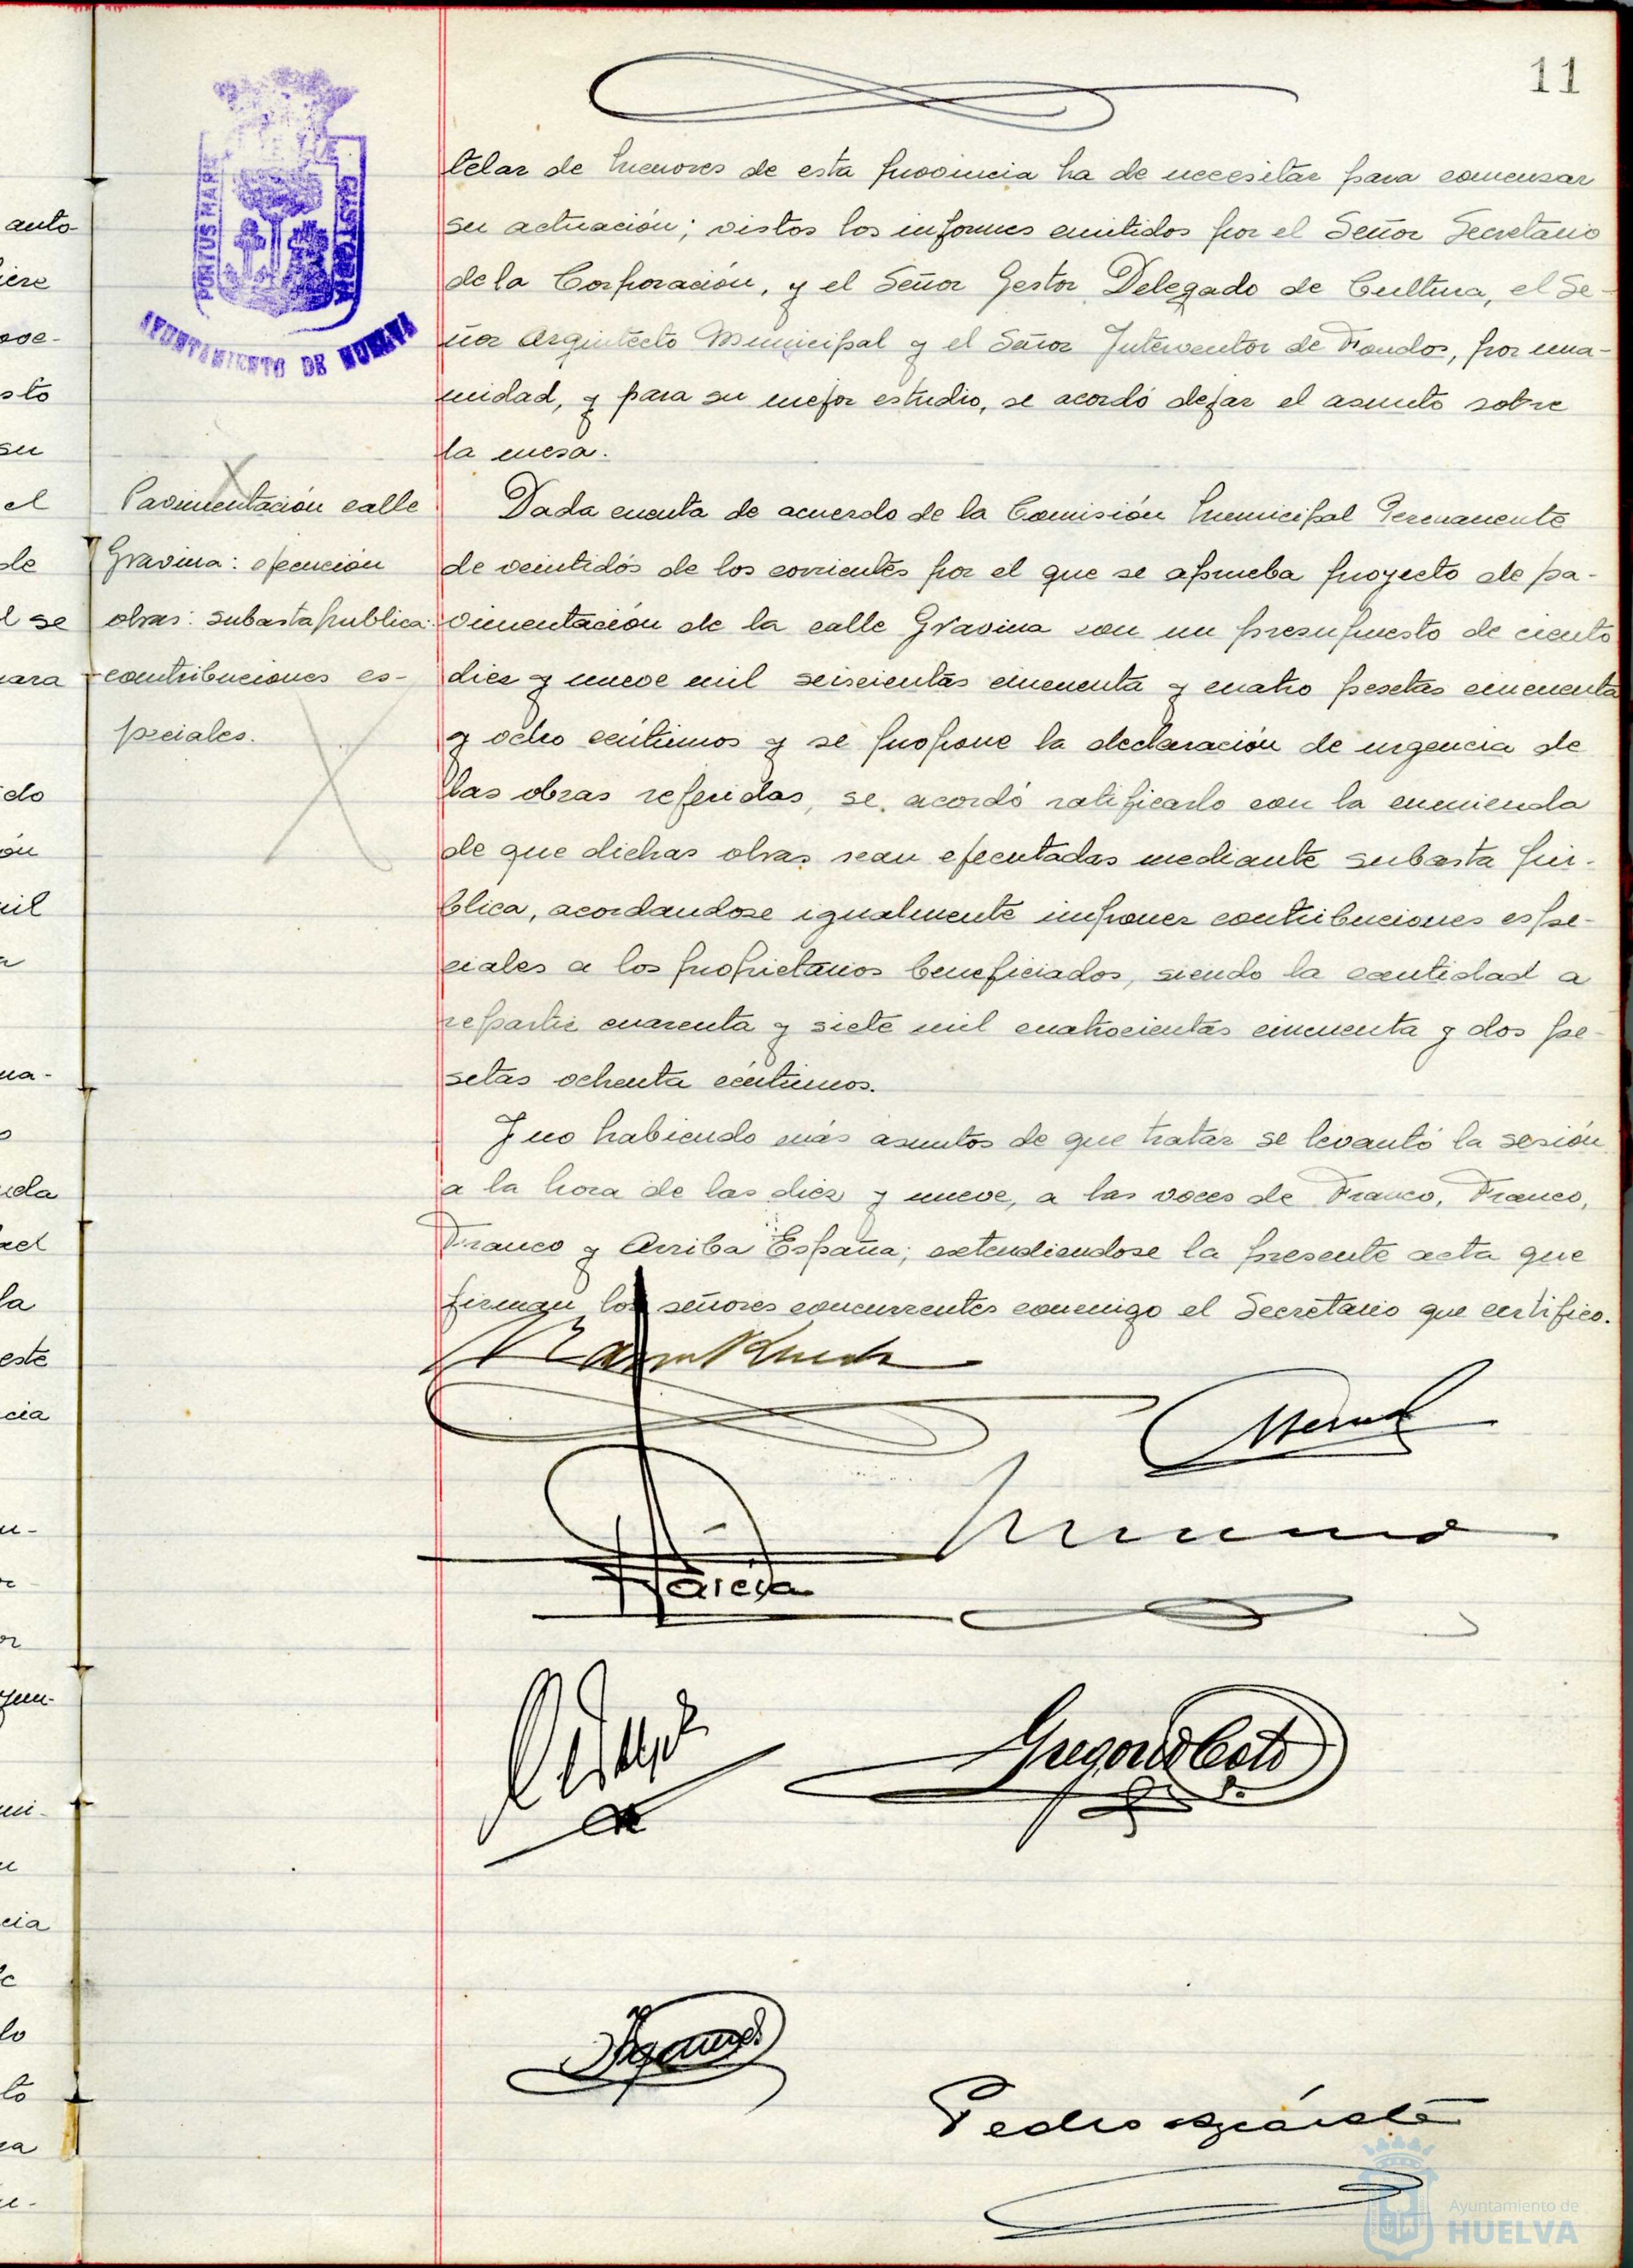 11
PORTUS MARIS
ET TERRÆ CUSTODIA
AYUNTAMIENTO DE HUELVA
telar de menores de esta provincia ha de necesitar para comenzar
su actuación; vistos los informes emitidos por el Señor Secretario
de la Corporación, y el Señor Gestor Delegado de Cultura, el Se-
ñor Arquitecto Municipal y el Señor Interventor de Fondos, por una-
nidad, y para su mejor estudio, se acordó dejar el asunto sobre
la mesa.
Pavimentación calle
Gravina: ejecución
obras: subasta publica:
contribuciones es-
peciales.
Dada cuenta de acuerdo de la Comisión Municipal Permanente
de veintidós de los corrientes por el que se aprueba proyecto de pa-
vimentación de la calle Gravina con un presupuesto de ciento
diez y nueve mil seiscientas cincuenta y cuatro pesetas cincuenta
y ocho céntimos y se propone la declaración de urgencia de
las obras referidas, se acordó ratificarlo con la enmienda
de que dichas obras sean ejecutadas mediante subasta pú-
blica, acordandose igualmente imponer contribuciones espe-
ciales a los propietarios beneficiados, siendo la cantidad a
repartir cuarenta y siete mil cuatrocientas cincuenta y dos pe-
setas ochenta céntimos.
Y no habiendo más asuntos de que tratar se levantó la sesión
a la hora de las diez y nueve, a las voces de Franco, Franco,
Franco y Arriba España; extendiendose la presente acta que
firman los señores concurrentes conmigo el Secretario que certifico.
García
Gregorio Coto
Pedro
Ayuntamiento de
HUELVA
auto-
iere
sto
su
el
de
l se
ara
do
ón
mil
na-
o
nda
la
este
cia
u-
or
cia
lo
to